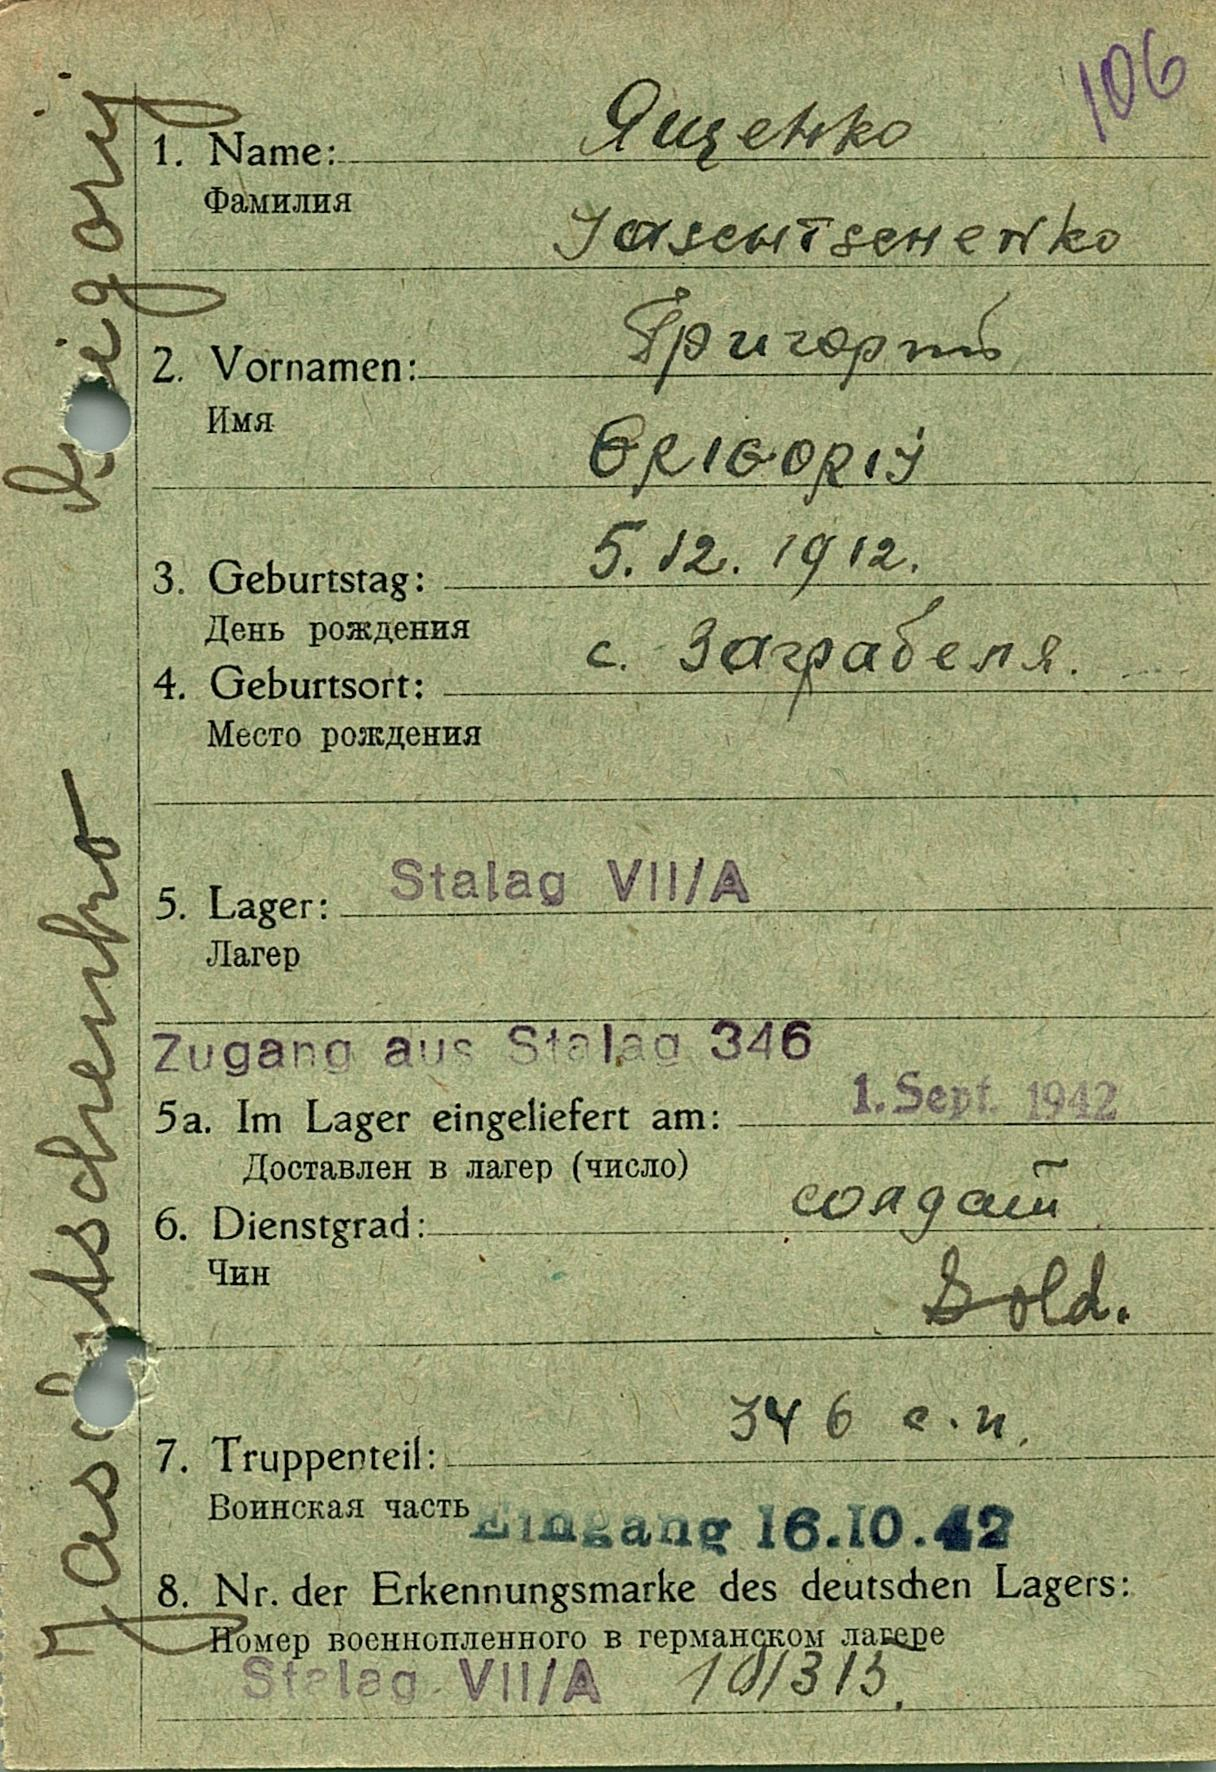 106
Ященко
1. Name:
Фамилия
Jaschtschenko
Григорий
2. Vornamen:
Имя
GRIGORIJ
5.12.1912.
3. Geburtstag:
День рождения
с. Заграбеля.
4. Geburtsort:
Место рождения
Stalag VII/A
5. Lager:
Лагер
Zugang aus Stalag 346
1. Sept. 1942
5a. Im Lager eingeliefert am:
Доставлен в лагер (число)
солдат
6. Dienstgrad:
Чин
Sold.
346 с.п.
7. Truppenteil:
Воинская часть
Eingang 16.10.42
8. Nr. der Erkennungsmarke des deutschen Lagers:
Номер военнопленного в германском лагере
Stalag VII/A
Jaschtschenko Grigorij